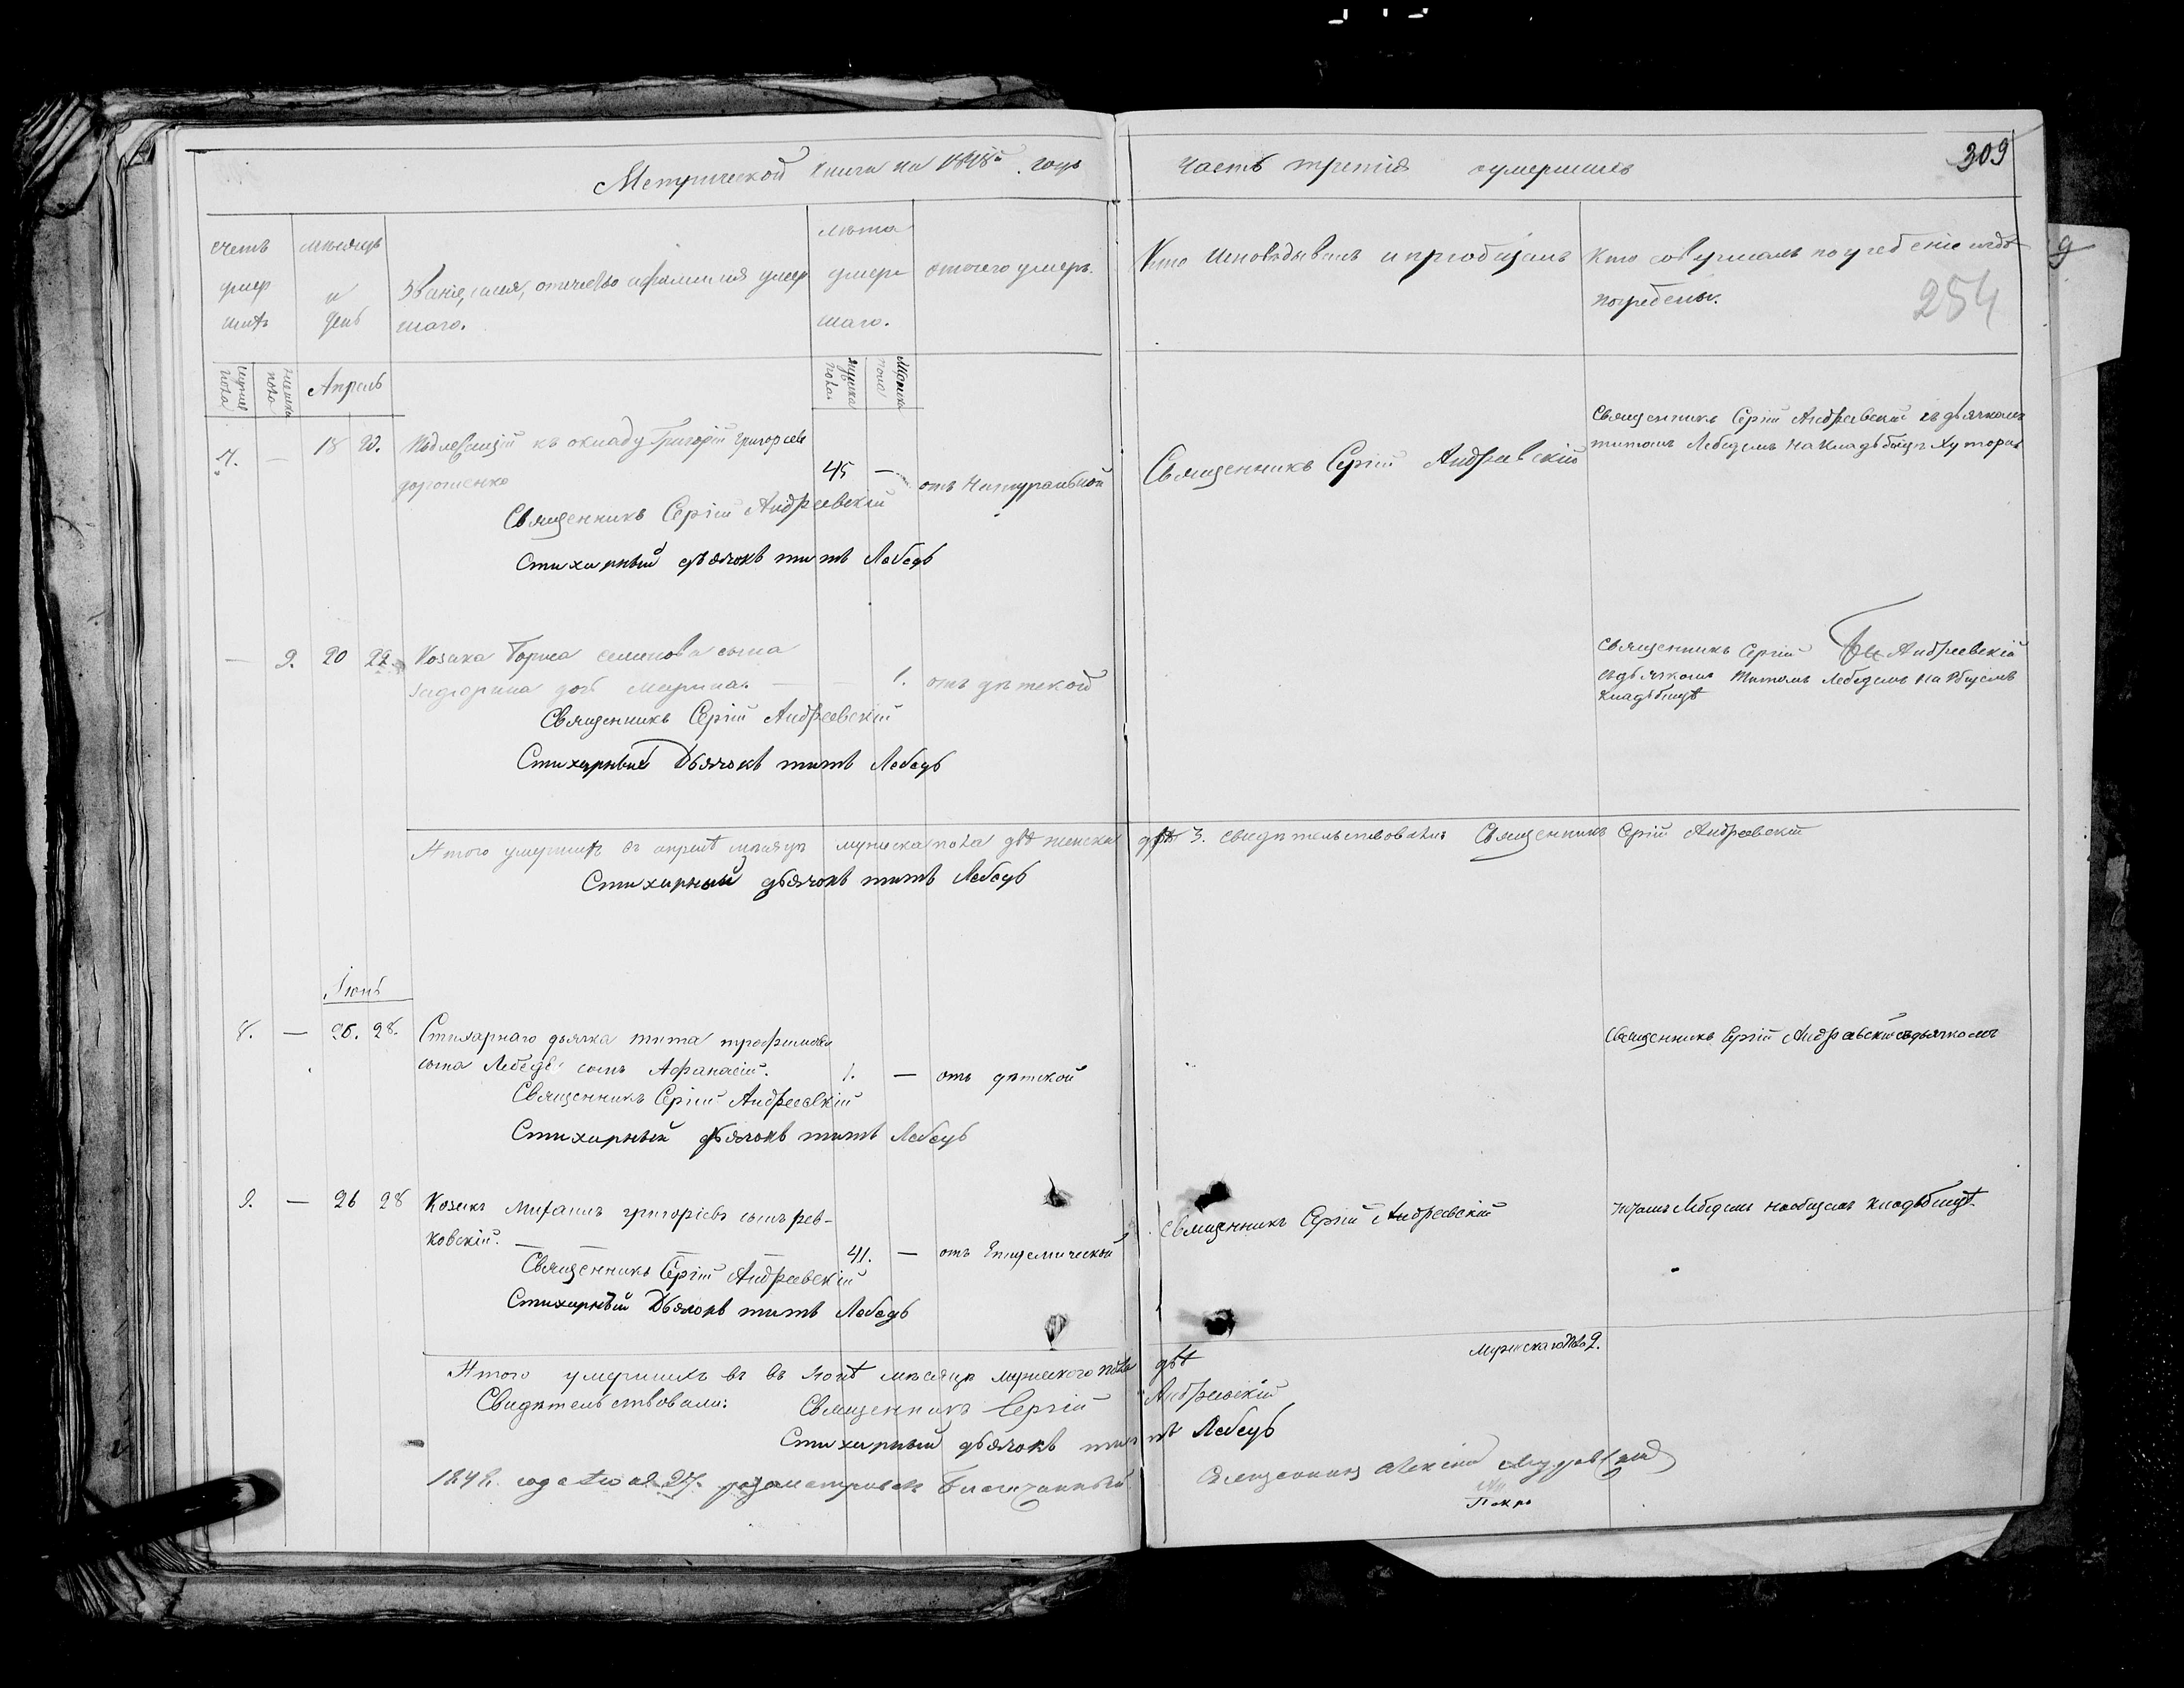 Метрической книги на 1848й годъ
часть третія
умершихъ
309
254
счетъ умер шихъ
мѣсяцъ и день
Званіе, имя, отчество и фамилія умер
шаго.
лѣта
умер
шаго.
отъ чего умеръ.
Кто исповѣдывалъ и пріобщалъ
Кто совершалъ погребеніе и гдѣ
погребены.
Апрель
7. — 18 20. Подлежащій къ окладу Григорій Григорьевъ
дорошенко
45 —
отъ Натуральной
Священникъ Сергій Андреевскій
Священникъ Сергій Андреевскій съ дьячкомъ
титомъ Лебедемъ на кладбищѣ Хутора
Священникъ Сергій Андреевскій
Стихарный дьячокъ титъ Лебедь
— 9. 20 22. Козака семенова сына
дочь Марина. — — 1. отъ дѣтской
Священникъ Сергій Андреевскій
съ дьячкомъ Титомъ Лебедемъ на Общемъ
кладбищѣ
Священникъ Сергій Андреевскій
Стихарный Дьячокъ титъ Лебедь
Итого умершихъ въ апрелѣ мѣсяцѣ мужеска пола двѣ женска 3. свидѣтельствовали Священникъ Сергій Андреевскій
Стихарный дьячокъ титъ Лебедь
Іюнь
8. — 26. 28. Стихарнаго дьячка тита трофимова
сына Лебедя сынъ Афанасій. 1. — отъ дѣтской
Священникъ Сергій Андреевскій съ дьячкомъ
Священникъ Сергій Андреевскій
Стихарный дьячокъ титъ Лебедь
9. — 26 28 Козакъ Михаилъ григоріевъ сынъ рев-
ковскій. — 41. — отъ Епидемической
Священникъ Сергій Андреевскій
титомъ Лебедемъ на общемъ кладбищѣ
Священникъ Сергій Андреевскій
Стихарный Дьячокъ титъ Лебедь
Итого умершихъ въ въ Іюнѣ мѣсяцѣ мужеского пола двѣ
мужска пола 2.
Свидѣтельствовали: Священникъ Сергій Андреевскій
Стихарный дьячокъ титъ Лебедь
1848. года 27. Благочинный Священникъ Алексій